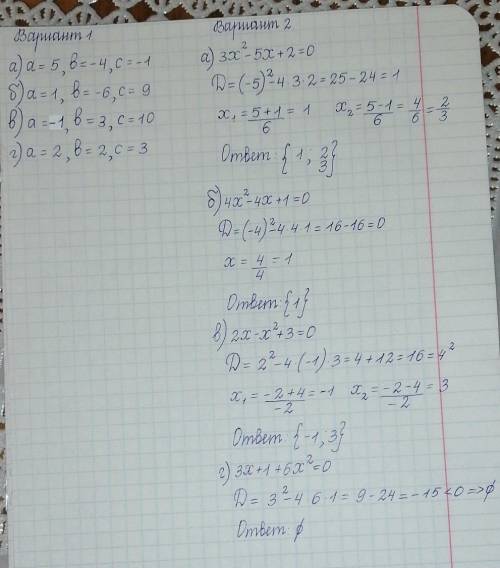 Вариант 1
а) a = 5, в = -4, c = -1
б) a = 1, в = -6, c = 9
в) a = -1, в = 3, c = 10
г) a = 2, в = 2, c = 3
Вариант 2
а) 3x² - 5x + 2 = 0
D = (-5)² - 4 · 3 · 2 = 25 - 24 = 1
x₁ = (5 + 1)/6 = 1    x₂ = (5 - 1)/6 = 4/6 = 2/3
Ответ: {1 ; 2/3}
б) 4x² - 4x + 1 = 0
D = (-4)² - 4 4 1 = 16 - 16 = 0
x = 4/4 = 1
Ответ: {1}
в) 2x - x² + 3 = 0
D = 2² - 4 (-1) 3 = 4 + 12 = 16 = 4²
x₁ = (-2 + 4)/-2 = -1    x₂ = (-2 - 4)/-2 = 3
Ответ: {-1, 3}
г) 3x + 1 + 6x² = 0
D = 3² - 4 6 · 1 = 9 - 24 = -15 < 0 => ∅
Ответ: ∅